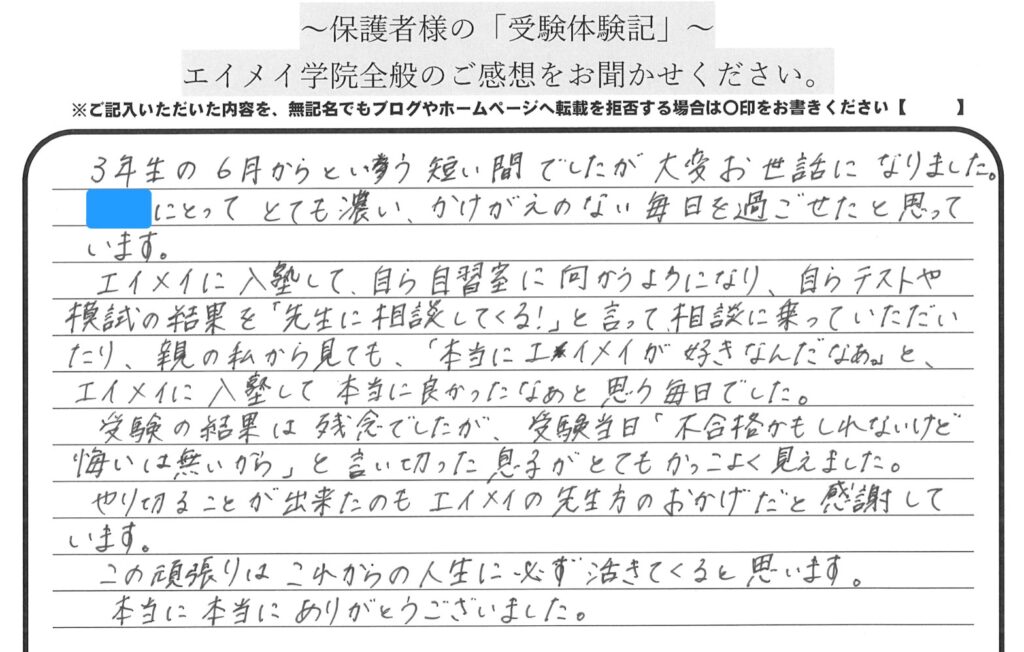 ～保護者様の「受験体験記」～
エイメイ学院全般のご感想をお聞かせください。
※ご記入いただいた内容を、無記名でもブログやホームページへ転載を拒否する場合は〇印をお書きください【　　　】
3年生の6月からという短い間でしたが大変お世話になりました。
にとってとても濃い、かけがえのない毎日を過ごせたと思って
います。
エイメイに入塾して、自ら自習室に向かうようになり、自らテストや
模試の結果を「先生に相談してくる!」と言って、相談に乗っていただい
たり、親の私から見ても、「本当にエイメイが好きなんだなあ。」と、
エイメイに入塾して本当に良かったなあと思う毎日でした。
受験の結果は残念でしたが、受験当日「不合格かもしれないけど
悔いは無いから」と言い切った息子がとてもかっこよく見えました。
やり切ることが出来たのもエイメイの先生方のおかげだと感謝して
います。
この頑張りはこれからの人生に必ず活きてくると思います。
本当に本当にありがとうございました。